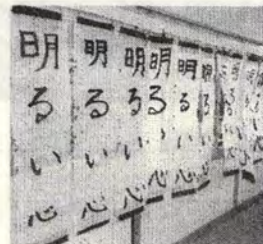 明るい心
明るい心
明るい心
明るい心
明るい心
明るい心